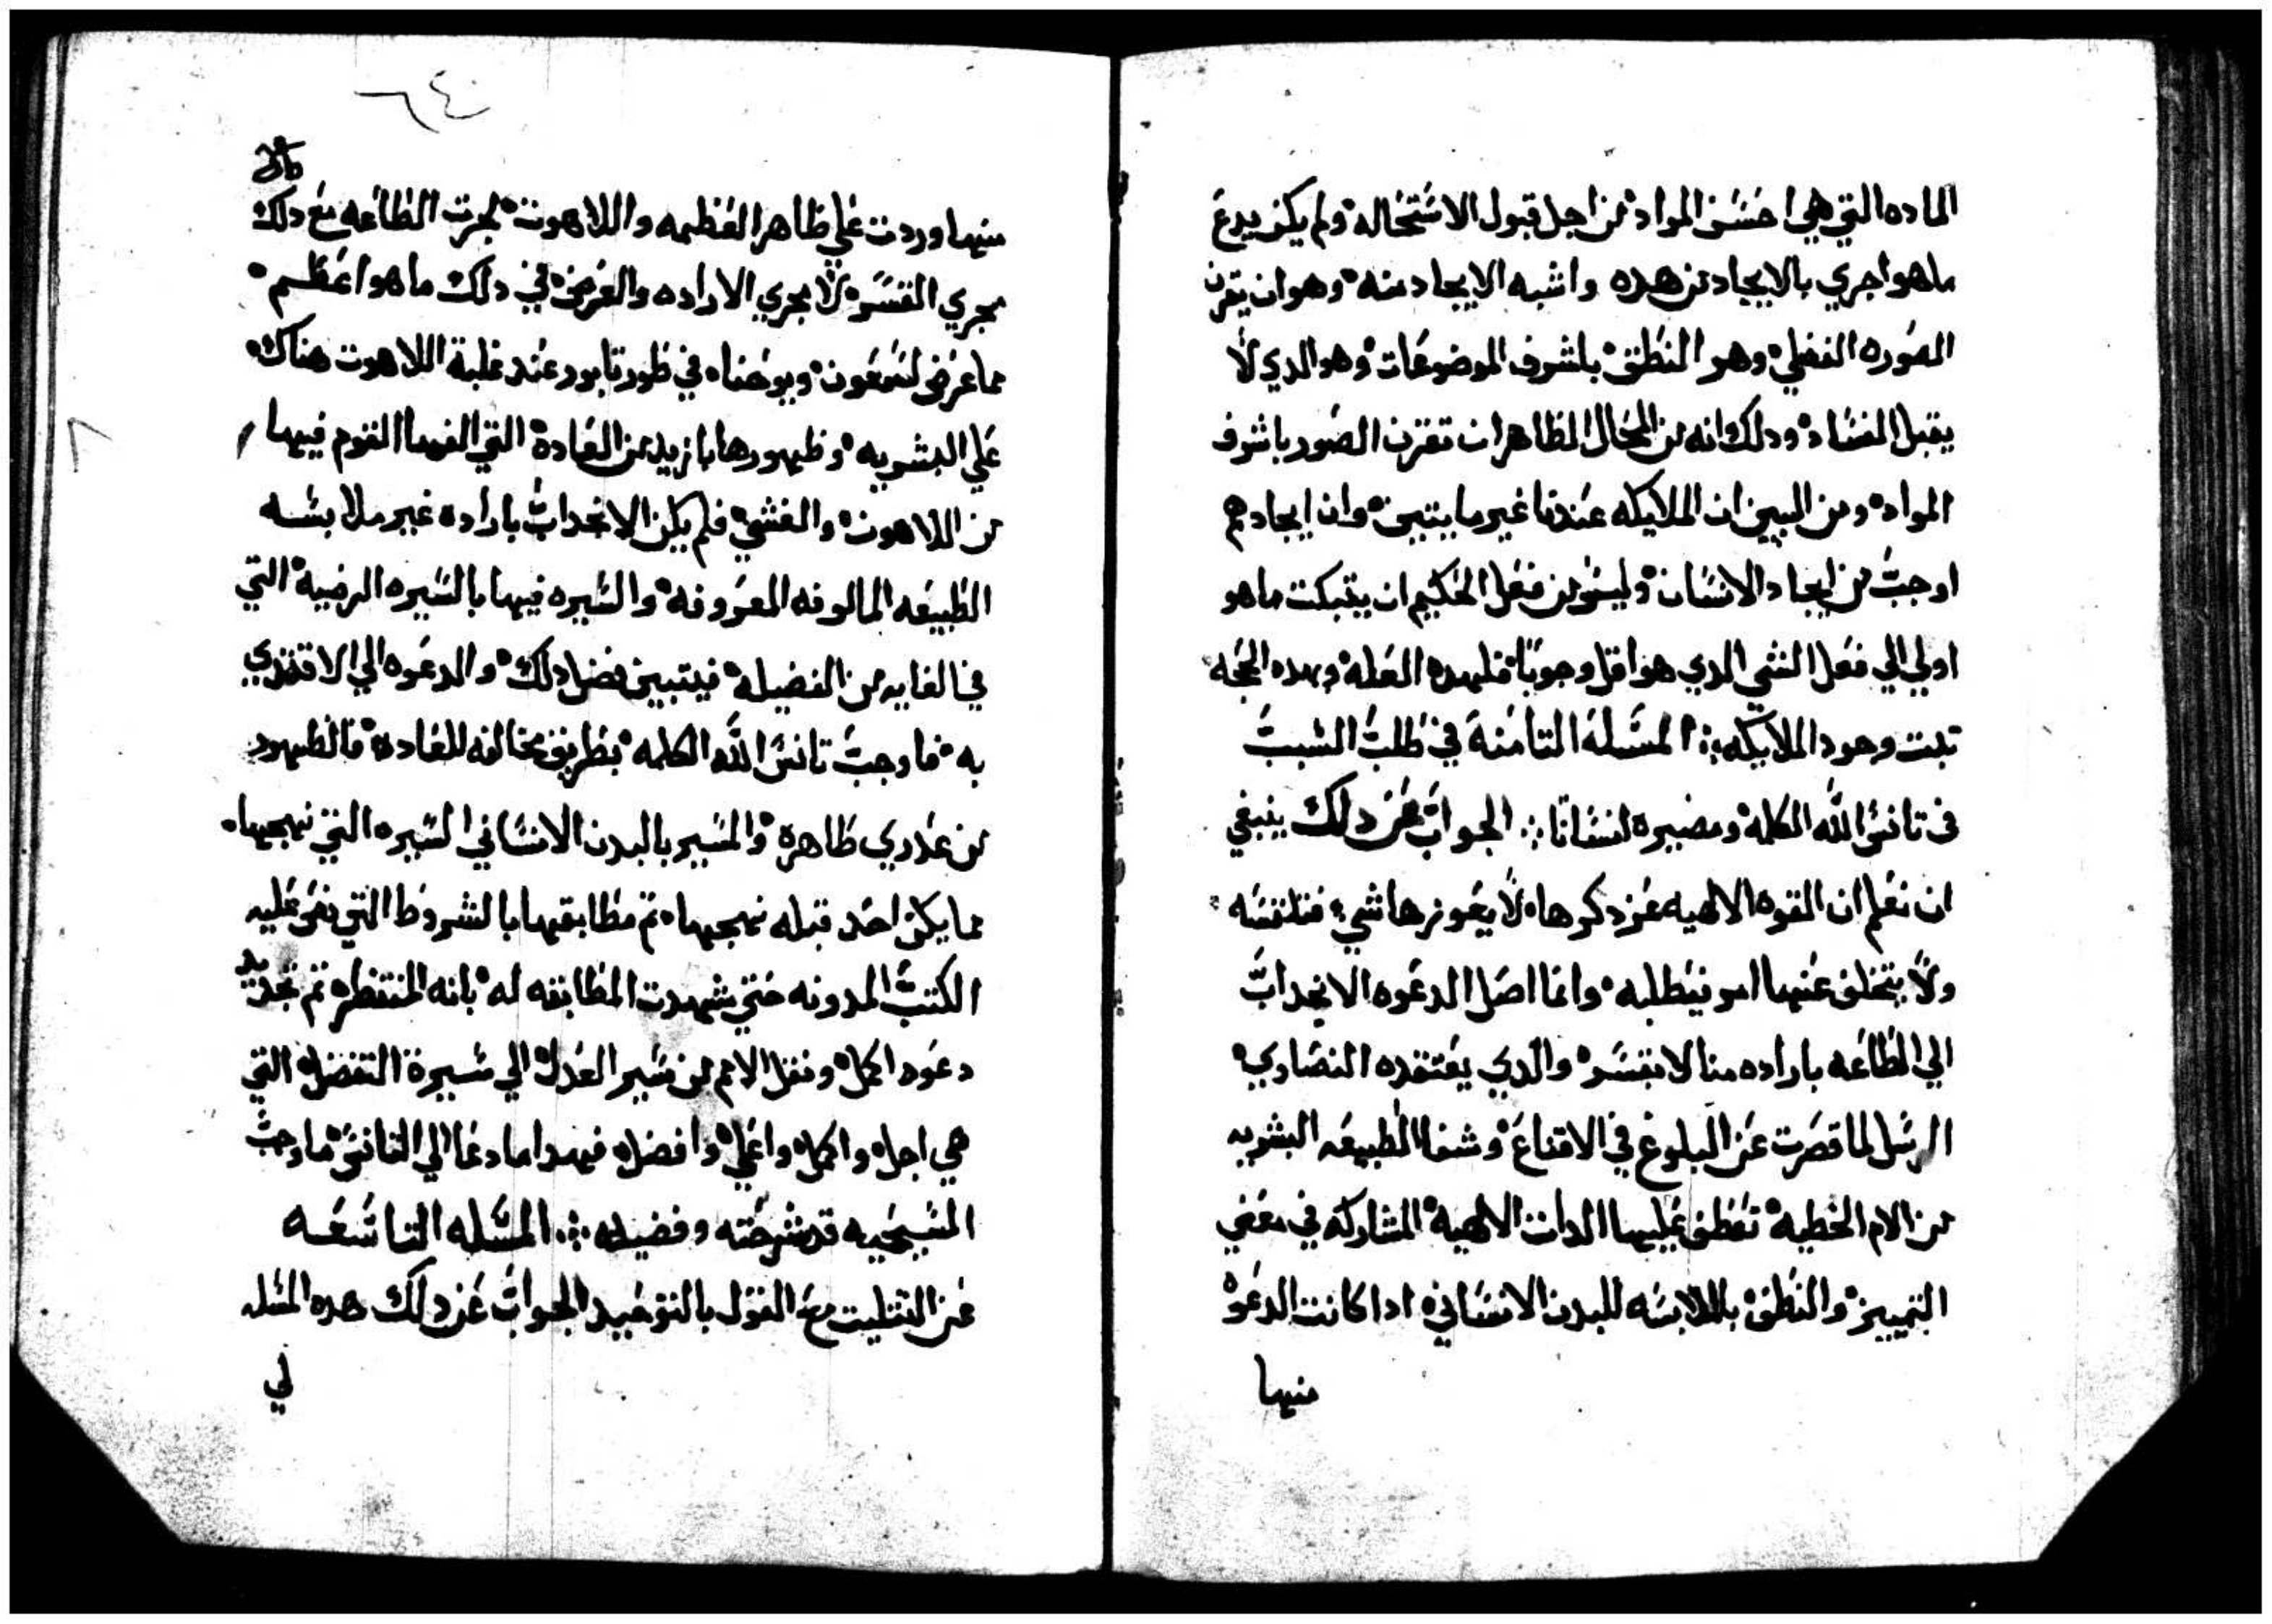 الماده التي هي احسن المواد من اجل قبول الاستحاله ولم يكن يدع
ماهو اجري بالايجاد من هده واشبه الايجاد منه وهو ان يقرن
الصوره الفضلي وهو النطق باشرف الموضوعات وهو الدي لا
يقبل الفساد ودلك انه من المحال الظاهر ان تقترن الصور باشرف
المواد ومن البين ان الملايكه عندنا غير مايتبين وان ايجادهم
اوجب من ايجاد الانسان وليس من فعل الحكيم ان يتبكت ماهو
اولي الي فعل الشي الدي هو اقل وجوبا فلهده العله وبهده الحجه
تبت وجود الملايكه ⁘ المسله التامنة في طلب السبب
في تانس الله الكلمة ومصيره انسانا ⁘ الجواب عن دلك ينبغي
ان نعلم ان القوه الالهيه عز دكرها لا يعوزها شي فتلتمسه
ولا يتخلف عنها امر فتطلبه وانما اصل الدعوه الانجداب
الي الطاعه باراده منا لا بقسر والدي يعتقده النصاري
الرسل لما قصرت عن البلوغ في الاقناع وشفا الطبيعه البشريه
من الام الخطيه تعطف عليها الدات الالهية المشاركه في معني
التمييز والنطق بالملابسه للبدن الانساني ادا كانت الدعوه
منها
٦٤
منها وردت علي ظاهر العظمه واللاهوت لجرت الطاعه مع دلك
مجري القسر لا مجري الاراده والغرض في دلك ماهو اعظم
مما عرض لشمعون ويوحنا في طور تابور عند غلبة اللاهوت هناك
علي البشريه وظهورها بازيد من العادة التي الفها القوم فيها
من اللاهوت والغشي فلم يكن الانجداب باراده غير ملابسه
الطبيعه المالوفه المعروفه والسيره فيها بالسيره الرضية التي
في الغايه من الفضيله فيتبين فضل دلك والدعوه الي الاقتدي
به فاوجب تانس الله الكلمه بطريق مخالفه للعاده فالظهور
من عدري طاهرة والمسير بالبدن الانساني السيره التي نهجها
مما يكن احد قبله نهجها تم مطابقها بالشروط التي نص عليه
الكتب المدونه حتي شهدت المطابقه له بانه المنتظر تم تجديد
دعوه اكمل ونقل الامم من مسير العدل الي مسيرة التفضل التي
هي اجل واكمل واعلي وافضل فهدا ما دعا الي التانس ما وجب
المسيحيه قد شرحته وفضيله ⁘ المسله التاسعه
عن التتليت مع القول بالتوحيد الجواب عن دلك هده المسله
لي